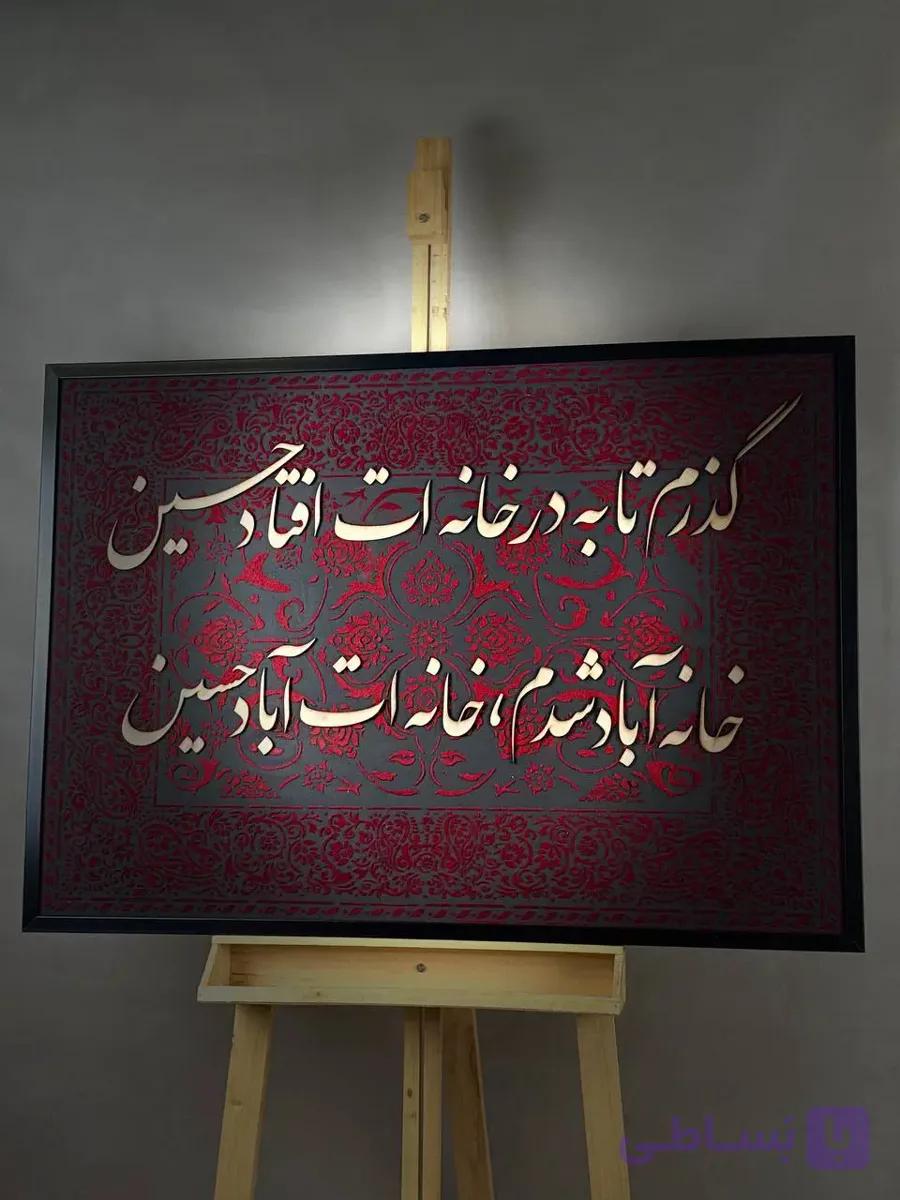 گذرم تا به در خانه ات افتاد حسین
خانه آباد شدم، خانه ات آباد حسین
بَساطی